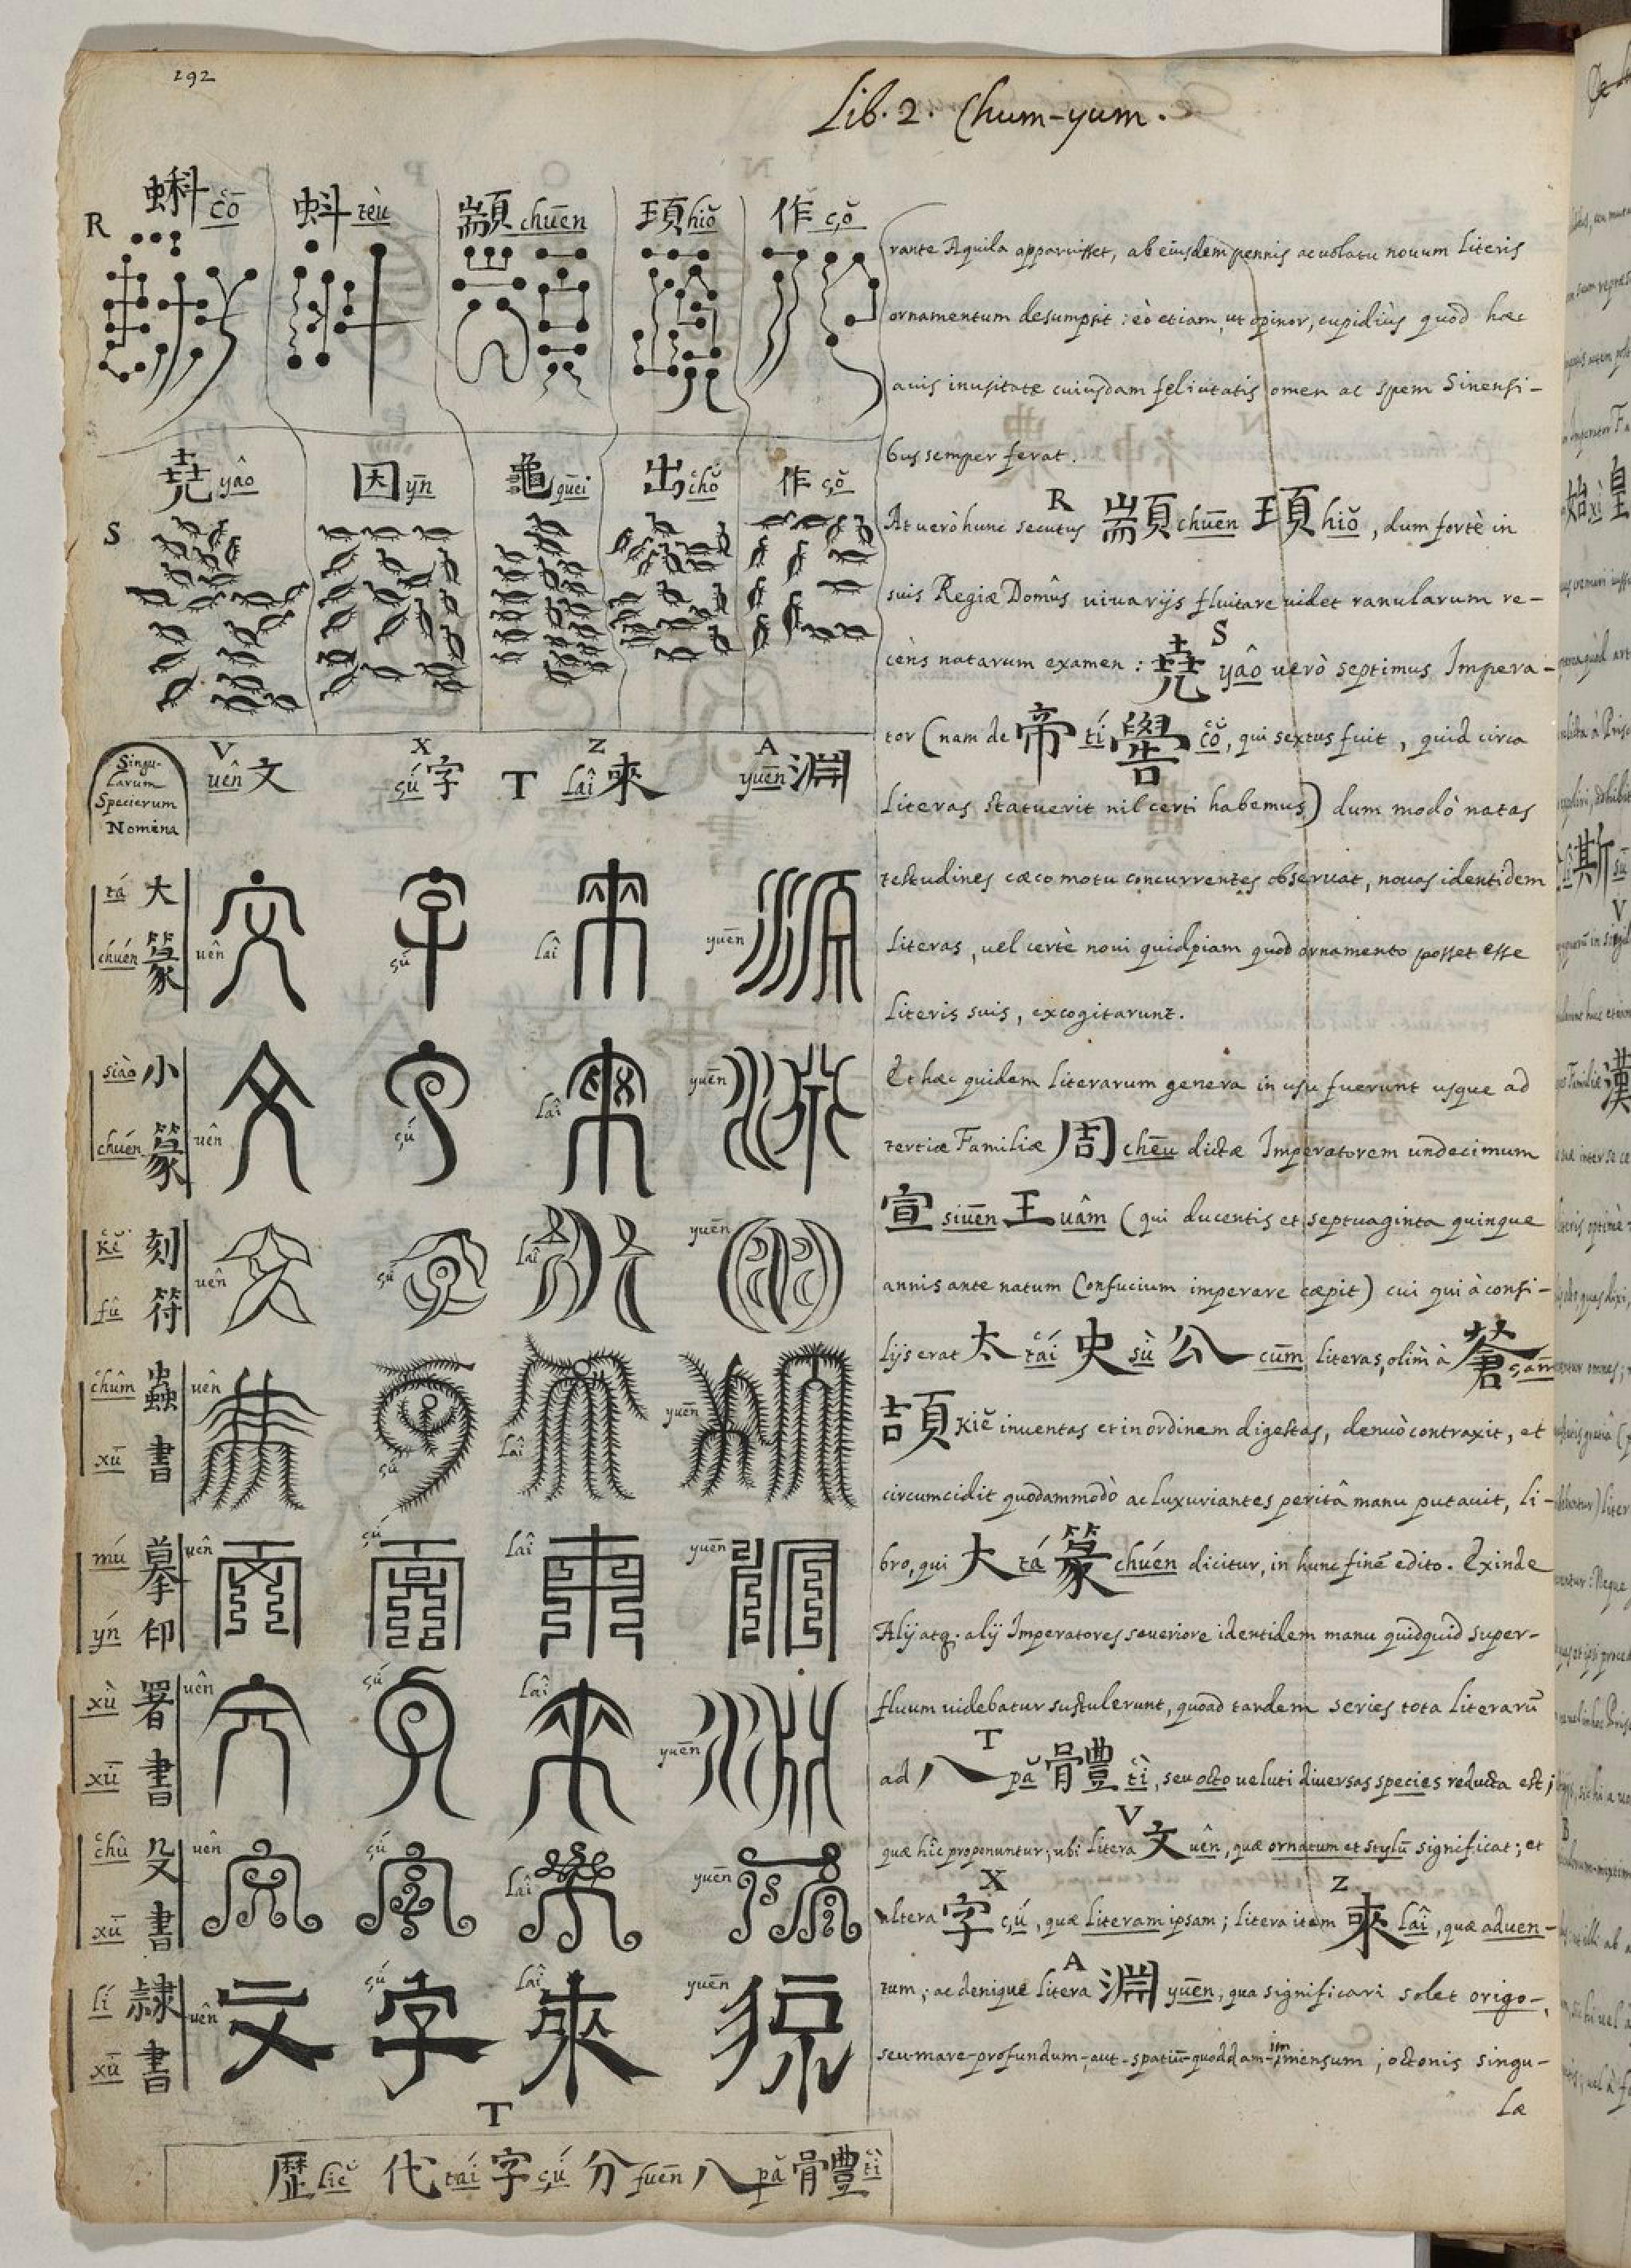 292
Lib. 2. Chum-yum.
R 蝌 cō 蚪 teù 顓 chuēn 頊 hiŏ 作 çŏ
S 堯 yâo 因 yn̄ 龜 quēi 出 chŏ 作 çŏ
Singu-
larum
Specierum
Nomina
V uên 文 X çú 字 T Z lâi 來 A yuēn 淵
tá 大
chuén 篆
uên çú lâi yuēn
siào 小
chuén 篆
uên çú lâi yuēn
kĕ 刻
fû 符
uên çú lâi yuēn
chûm 蟲
xū 書
uên çú lâi yuēn
mú 摹
ýn 印
uên çú lâi yuēn
xù 署
xū 書
uên çú lâi yuēn
chû 殳
xū 書
uên çú lâi yuēn
lí 隸
xū 書
uên 文 çú 字 lâi 來 yuēn
T
歷 liĕ 代 tái 字 çú 分 fuēn 八 pă 體 tì
rante Aquila apparuisset, ab eiusdem pennis ac volatu novum literis
ornamentum desumpsit: eò etiam, ut opinor, cupidiùs quod hæc
avis inusitatæ cuiusdam felicitatis omen ac spem Sinensi-
bus semper ferat.
At verò hunc secutus R 顓 chuēn 頊 hiŏ, dum fortè in
suis Regiæ Domûs vivarijs fluitare videt ranularum re-
cèns natarum examen: S 堯 yâo verò septimus Impera-
tor (nam de 帝 tí 嚳 cŏ, qui sextus fuit, quid circa
literas statuerit nil certi habemus) dum modò natas
testudines cæco motu concurrentes observat, novas identidem
literas, vel certè novi quidpiam quod ornamento posset esse
literis suis, excogitarunt.
Et hæc quidem literarum genera in usu fuerunt usque ad
tertiæ Familiæ 周 chēu dictæ Imperatorem undecimum
宣 siuēn 王 uâm (qui ducentis et septuaginta quinque
annis ante natum Confucium imperare cæpit) cui qui à consi-
lijs erat 太 tái 史 sù 公 cūm literas, olim à 蒼 çām
頡 kiĕ inventas et in ordinem digestas, denuò contraxit, et
circumcidit quodammodò ac luxuriantes peritâ manu putavit, li-
bro, qui 大 tá 篆 chuén dicitur, in hunc finē edito. Exinde
Alij atq. alij Imperatores severiore identidem manu quidquid super-
fluum videbatur sustulerunt, quoad tandem series tota literarū
ad T 八 pă 體 tì, seu octo veluti diversas species reducta est;
quæ hîc proponuntur; ubi litera V 文 uên, quæ ornatum et stylū significat; et
altera X 字 çú, quæ literam ipsam; litera item Z 來 lâi, quæ adven-
tum; ac denique litera A 淵 yuēn, qua significari solet origo-,
seu-mare-profundum-, aut-spatiū-quoddam-immensum; octonis singu-
læ